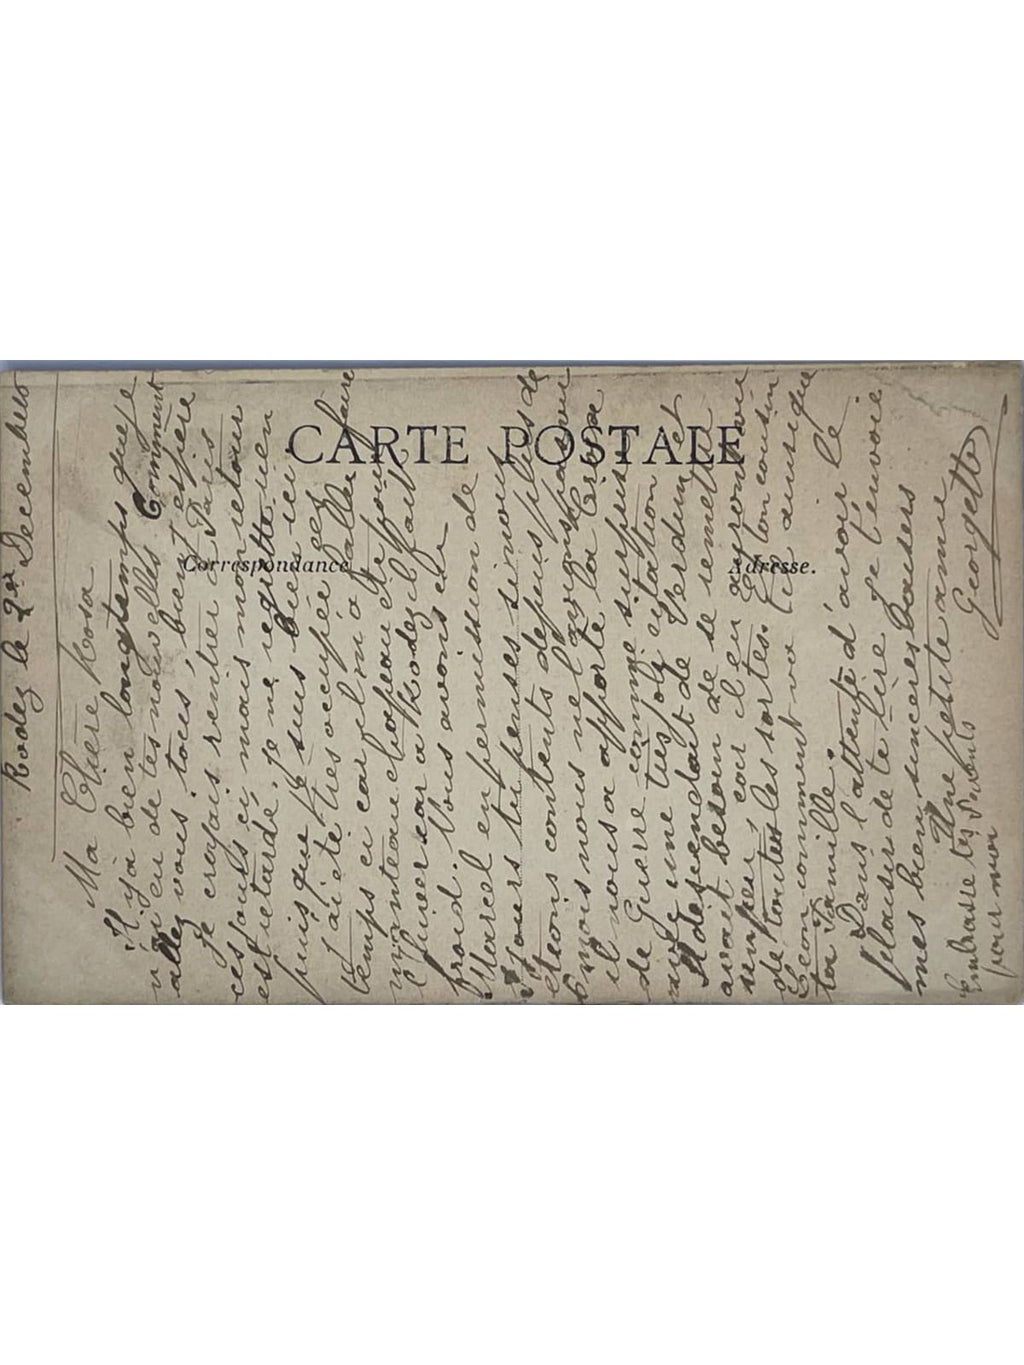 CARTE POSTALE
Correspondance
Adresse.
Rodez le Decembre
Ma Chère Rosa
Il y a bien longtemps que je
n'ai eu de tes nouvelles Comment
allez vous tous, bien j'espère
Je croyais rentrer à Paris
ces jours ci mais mon retour
est retardé, je ne regrette rien
puisque je suis bien ici.
J'ai été très occupée ces
temps ci car il m'a fallu faire
manteau chapeau et pour
l'hiver car a Rodez il fait
froid. Nous avons eu
Marcel en permission de
jours tu penses si nous
étions contents depuis plus de
6 mois nous ne l'avions pas vu
il nous a apporté la Croix
de Guerre comme surprise
avec une très joli citation
Il descendait de Verdun et
avait besoin de se remettre
un peu car il en avait vu
de toutes les sortes. Et ton cousin
Leon comment va t'il ainsi que
ta famille.
Dans l'attente d'avoir le
plaisir de te lire je t'envoie
mes bien sincères baisers
Une petite amie
Georgette
Embrasse tes Parents
pour moi